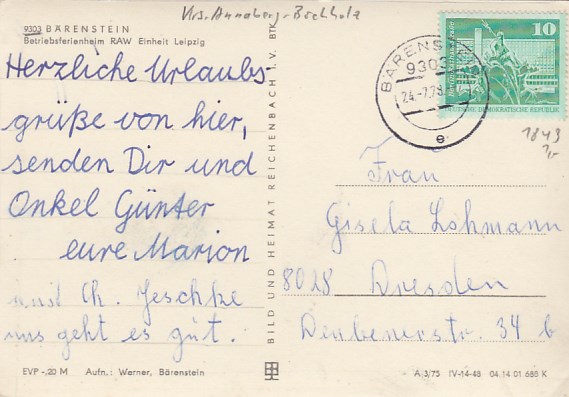 Krs. Annaberg-Buchholz
9303 BÄRENSTEIN
Betriebsferienheim RAW Einheit Leipzig
Herzliche Urlaubs-
grüße von hier,
senden Dir und
Onkel Günter
eure Marion
und Ch. Jeschke
uns geht es gut.
EVP -,20 M Aufn.: Werner, Bärenstein
BILD UND HEIMAT REICHENBACH I. V. BTK
BÄRENSTEIN
9303
24.-7.78
e
10
DEUTSCHE DEMOKRATISCHE REPUBLIK
1843
Frau
Gisela Lohmann
8028 Dresden
Deubenerstr. 34 b
A 3/75 IV-14-48 04 14 01 688 K